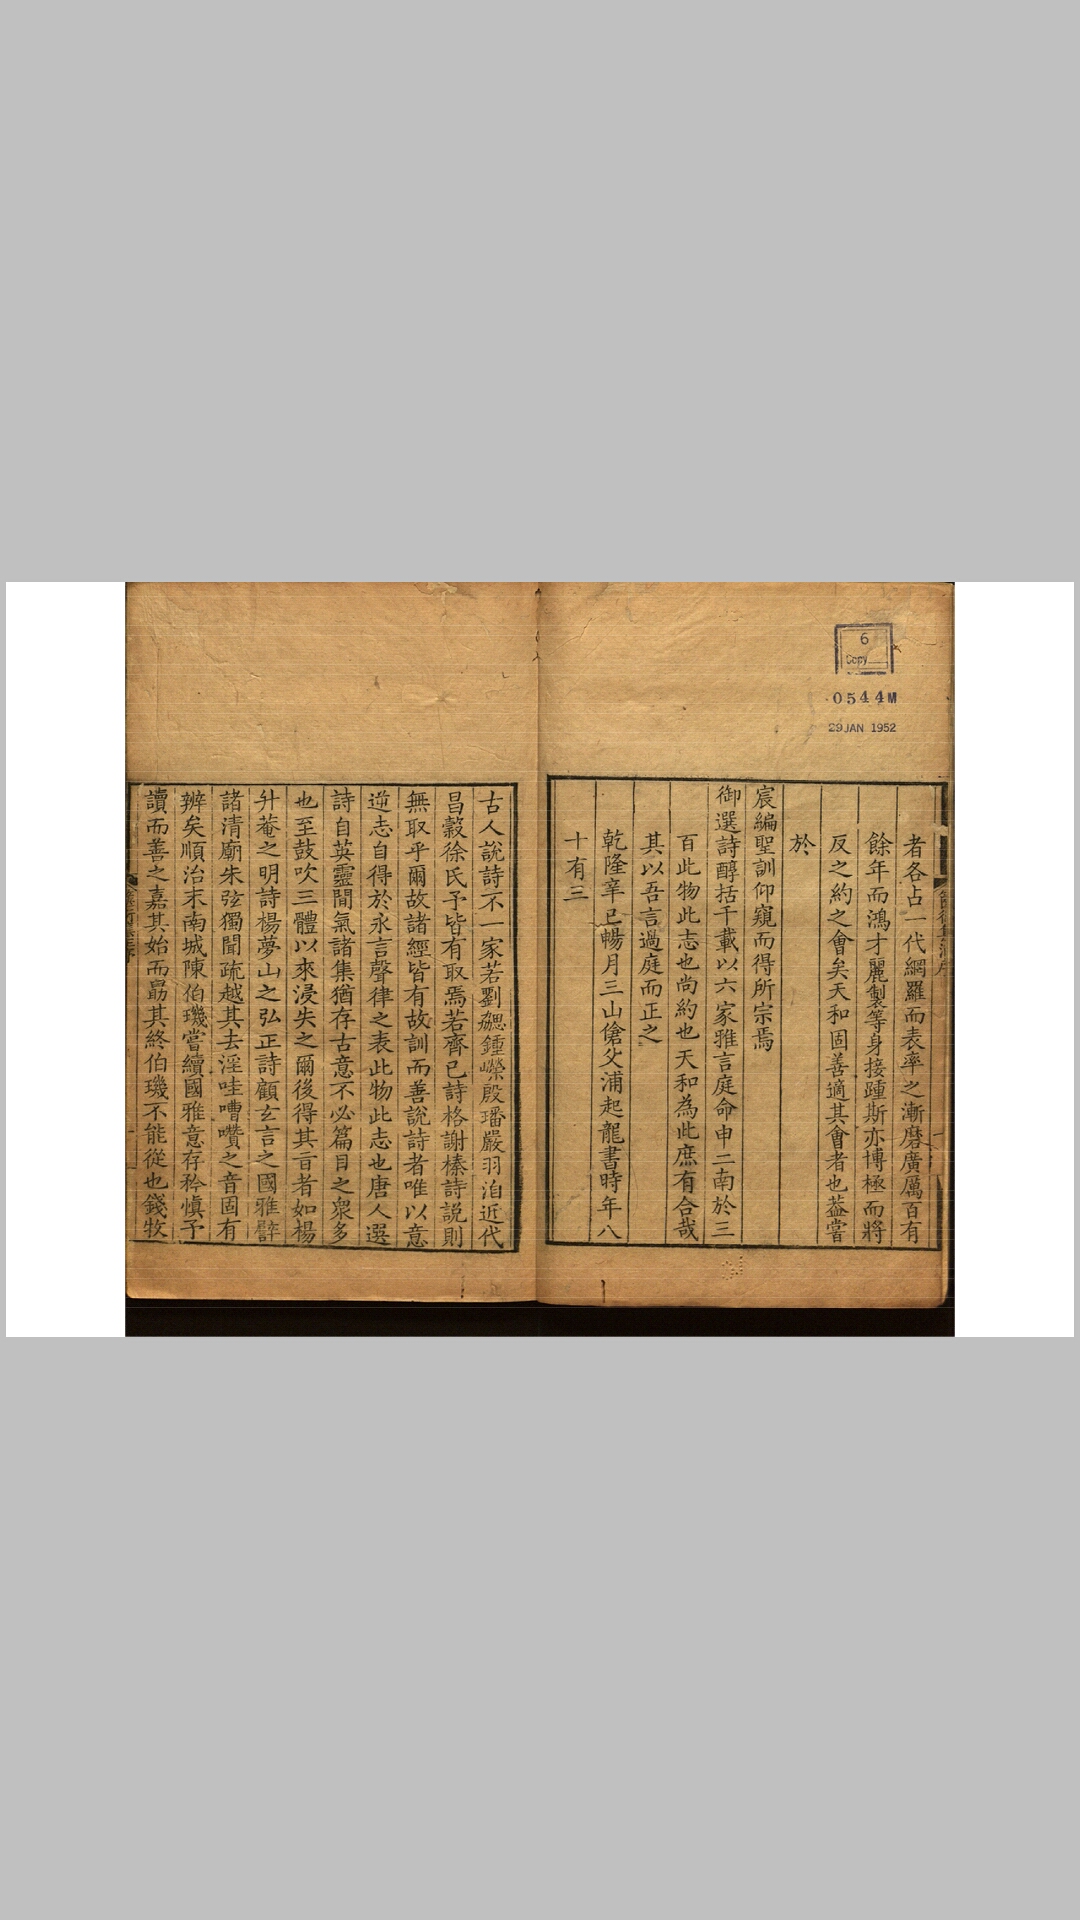 6
Copy
0544M
29 JAN 1952
者各占一代網羅而表率之漸磨廣厲百有
餘年而鴻才麗製等身接踵斯亦博極而將
反之約之會矣天和固善適其會者也葢嘗
於
宸編聖訓仰窺而得所宗焉
御選詩醇括千載以六家雅言庭命申二南於三
百此物此志也尚約也天和為此庶有合哉
其以吾言過庭而正之
乾隆辛巳暢月三山傖父浦起龍書時年八
十有三
古人說詩不一家若劉勰鍾嶸殷璠嚴羽洎近代
昌糓徐氏予皆有取焉若齊已詩格謝榛詩說則
無取乎爾故諸經皆有故訓而善說詩者唯以意
逆志自得於永言聲律之表此物此志也唐人選
詩自英靈間氣諸集猶存古意不必篇目之衆多
也至鼓吹三體以來浸失之爾後得其旨者如楊
升菴之明詩楊夢山之弘正詩顧玄言之國雅譬
諸清廟朱弦獨聞疏越其去淫哇嘈囋之音固有
辨矣順治末南城陳伯璣嘗續國雅意存矜愼予
讀而善之嘉其始而勗其終伯璣不能從也錢牧